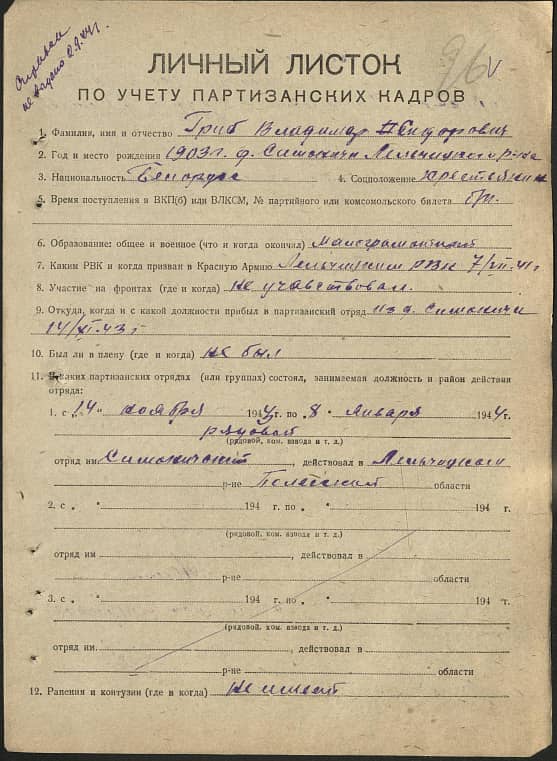 не 2.9.44г.
96 v
ЛИЧНЫЙ ЛИСТОК
ПО УЧЕТУ ПАРТИЗАНСКИХ КАДРОВ
1. Фамилия, имя и отчество Гриб Владимир
2. Год и место рождения 1903г. д. Симоничи Лельчицкого р-на
3. Национальность Белорус 4. Соцположение Крестьянин
5. Время поступления в ВКП(б) или ВЛКСМ, № партийного или комсомольского билета б/п.
6. Образование: общее и военное (что и когда окончил) Малограмотный
7. Каким РВК и когда призван в Красную Армию Лельчицким РВК 7/VII.41г
8. Участие на фронтах (где и когда) не участвовал.
9. Откуда, когда и с какой должности прибыл в партизанский отряд из д. Симоничи
14/XI.43г
10. Был ли в плену (где и когда) не был
11. В каких партизанских отрядах (или группах) состоял, занимаемая должность и район действия
отряда:
1. с „14" ноября 1943г. по „8" января 1944г.
рядовой
(рядовой, ком. взвода и т. д.)
отряд им. Симоничский, действовал в Лельчицком
р-не Полесской области
2. с „ " 194 г. по „ " 194 г.
(рядовой, ком. взвода и т. д.)
отряд им , действовал в
р-не области
3. с „ " 194 г. по „ " 194 г.
(рядовой, ком. взвода и т. д.)
отряд им. , действовал в
р-не области
12. Ранения и контузии (где и когда) не имеет